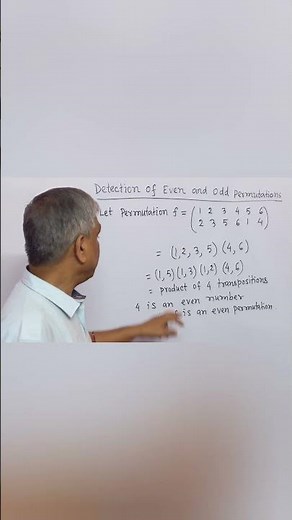 Detection of Even and Odd Permutations
Let Permutation f = ( 1 2 3 4 5 6
2 3 5 6 1 4 )
= (1, 2, 3, 5) (4, 6)
= (1, 5) (1, 3) (1, 2) (4, 6)
= product of 4 transpositions
4 is an even number
is an even permutation